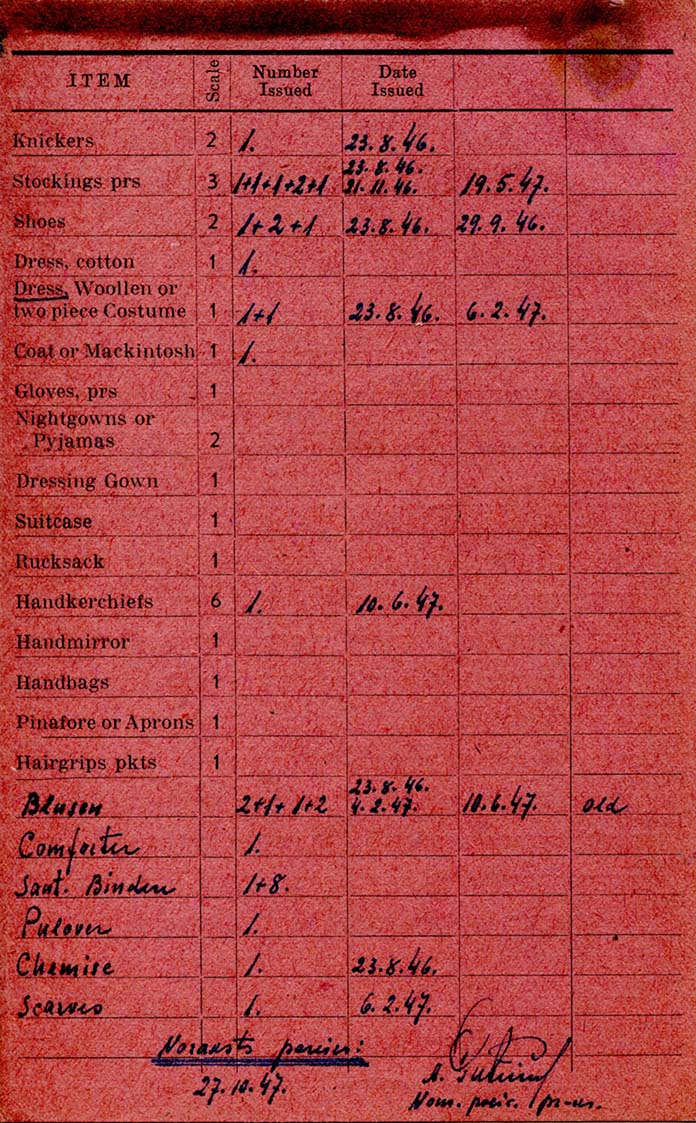 ITEM Scale Number Issued Date Issued
Knickers 2 1. 23.8.46.
Stockings prs 3 1+1+1+2+1 23.8.46. 21.11.46. 19.5.47.
Shoes 2 1+2+1 23.8.46. 29.9.46.
Dress, cotton 1 1.
Dress, Woollen or
two piece Costume 1 1+1 23.8.46. 6.2.47.
Coat or Mackintosh 1 1.
Gloves, prs 1
Nightgowns or
Pyjamas 2
Dressing Gown 1
Suitcase 1
Rucksack 1
Handkerchiefs 6 1. 10.6.47.
Handmirror 1
Handbags 1
Pinafore or Aprons 1
Hairgrips pkts 1
Blusen 2+1+1+2 23.8.46. 4.2.47. 10.6.47. old
Comforter 1.
Sanit. Binden 1+8.
Pulover 1.
Chemise 1. 23.8.46.
Scarves 1. 6.2.47.
Noraksts pareizs:
27.10.47. A.